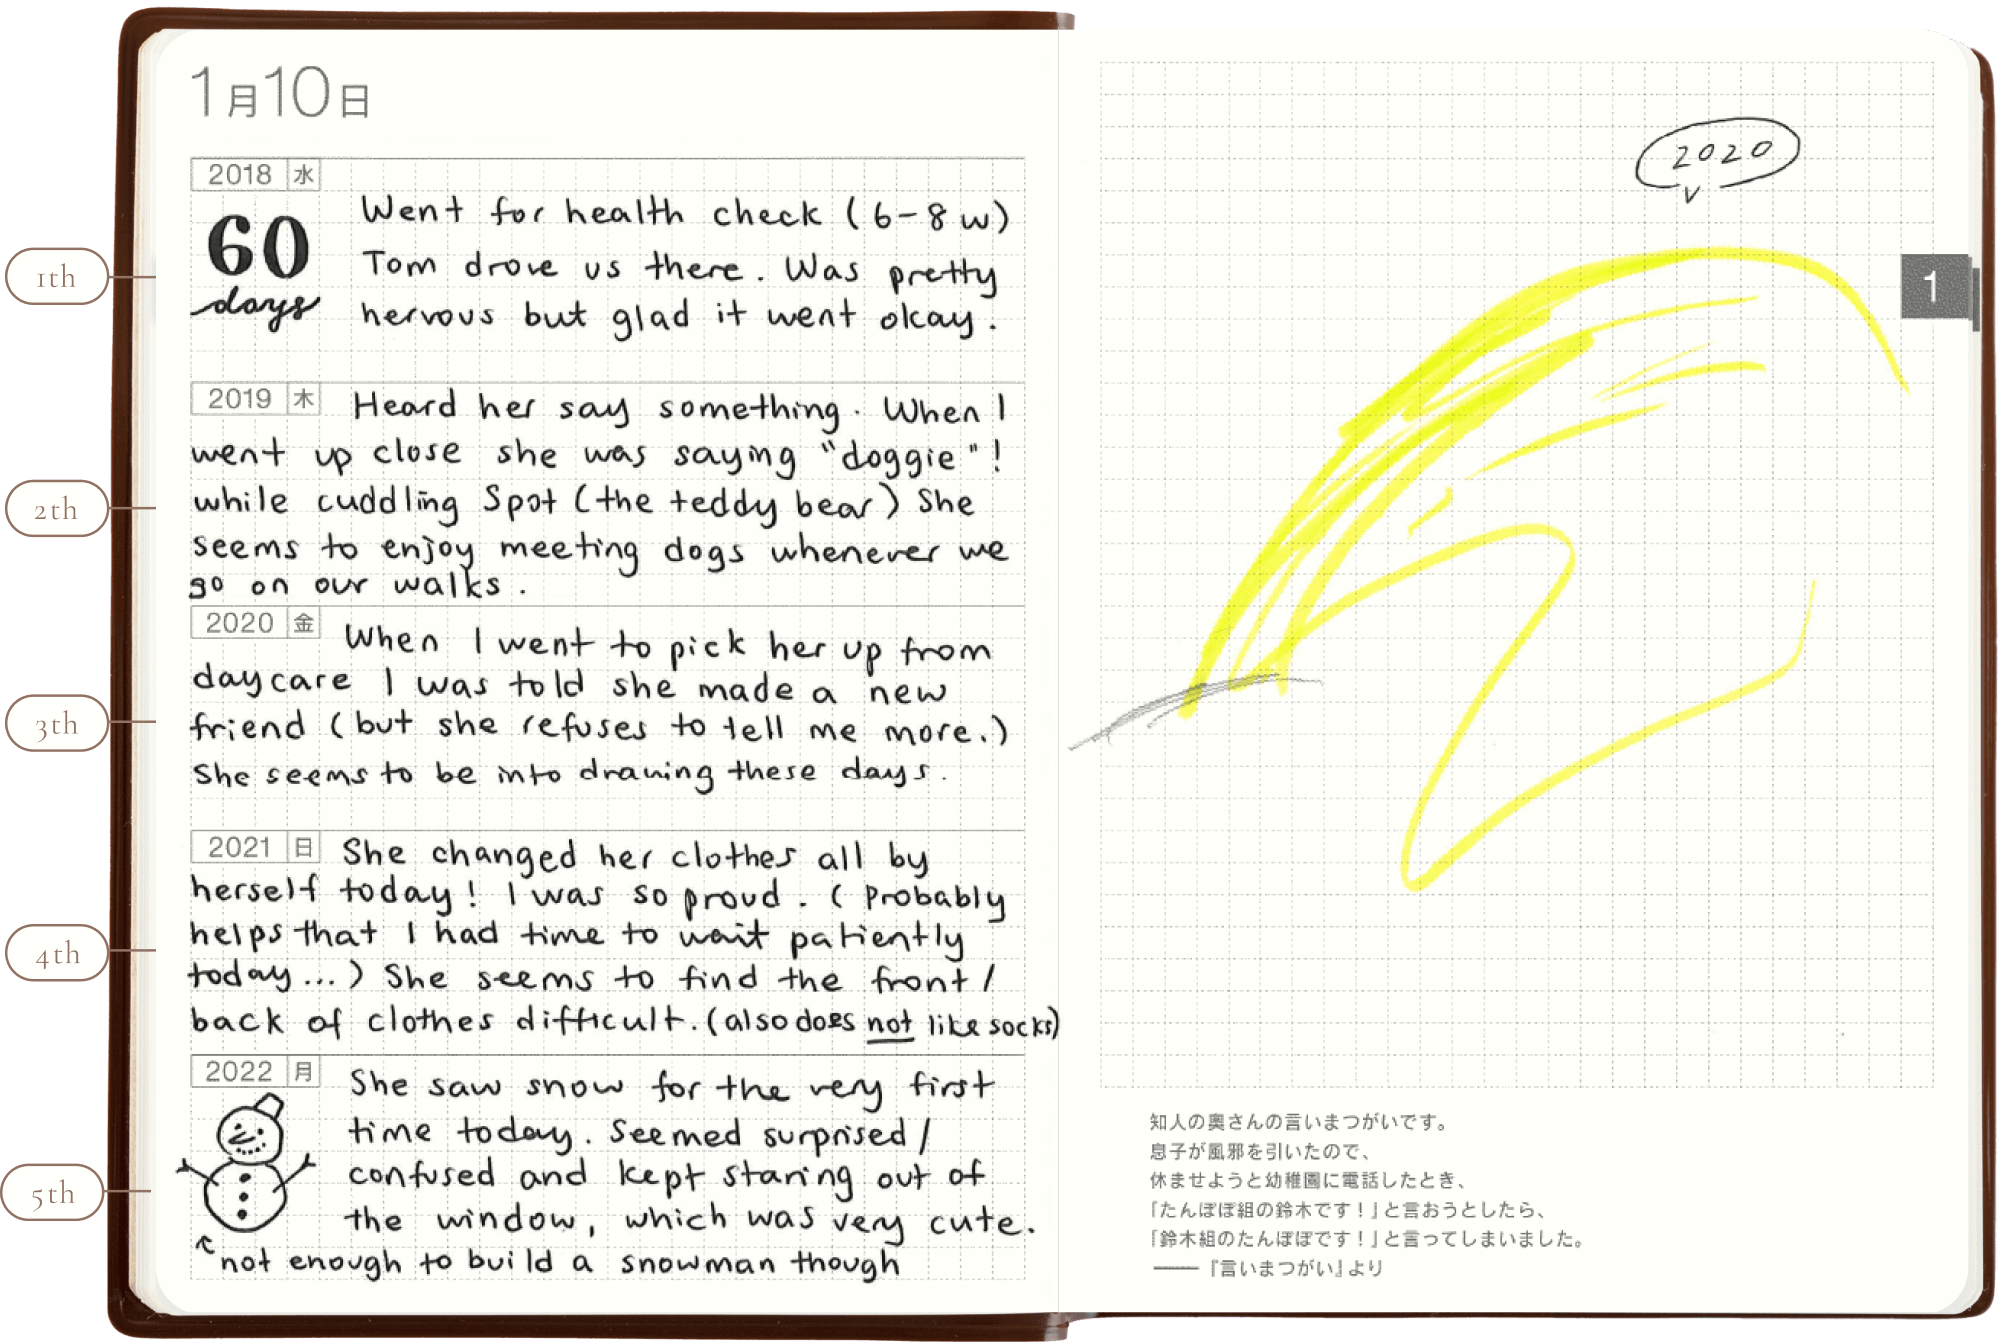 1月10日
2018 水
60
days
Went for health check (6-8w)
Tom drove us there. Was pretty
nervous but glad it went okay.
1th
2019 木
Heard her say something. When I
went up close she was saying "doggie"!
while cuddling Spot (the teddy bear) She
seems to enjoy meeting dogs whenever we
go on our walks.
2th
2020 金
When I went to pick her up from
daycare I was told she made a new
friend (but she refuses to tell me more.)
She seems to be into drawing these days.
3th
2021 日
She changed her clothes all by
herself today! I was so proud. (Probably
helps that I had time to wait patiently
today...) She seems to find the front/
back of clothes difficult. (also does not like socks)
4th
2022 月
She saw snow for the very first
time today. Seemed surprised/
confused and kept staring out of
the window, which was very cute.
not enough to build a snowman though
5th
2020
1
知人の奥さんの言いまつがいです。
息子が風邪を引いたので、
休ませようと幼稚園に電話したとき、
「たんぽぽ組の鈴木です！」と言おうとしたら、
「鈴木組のたんぽぽです！」と言ってしまいました。
――『言いまつがい』より